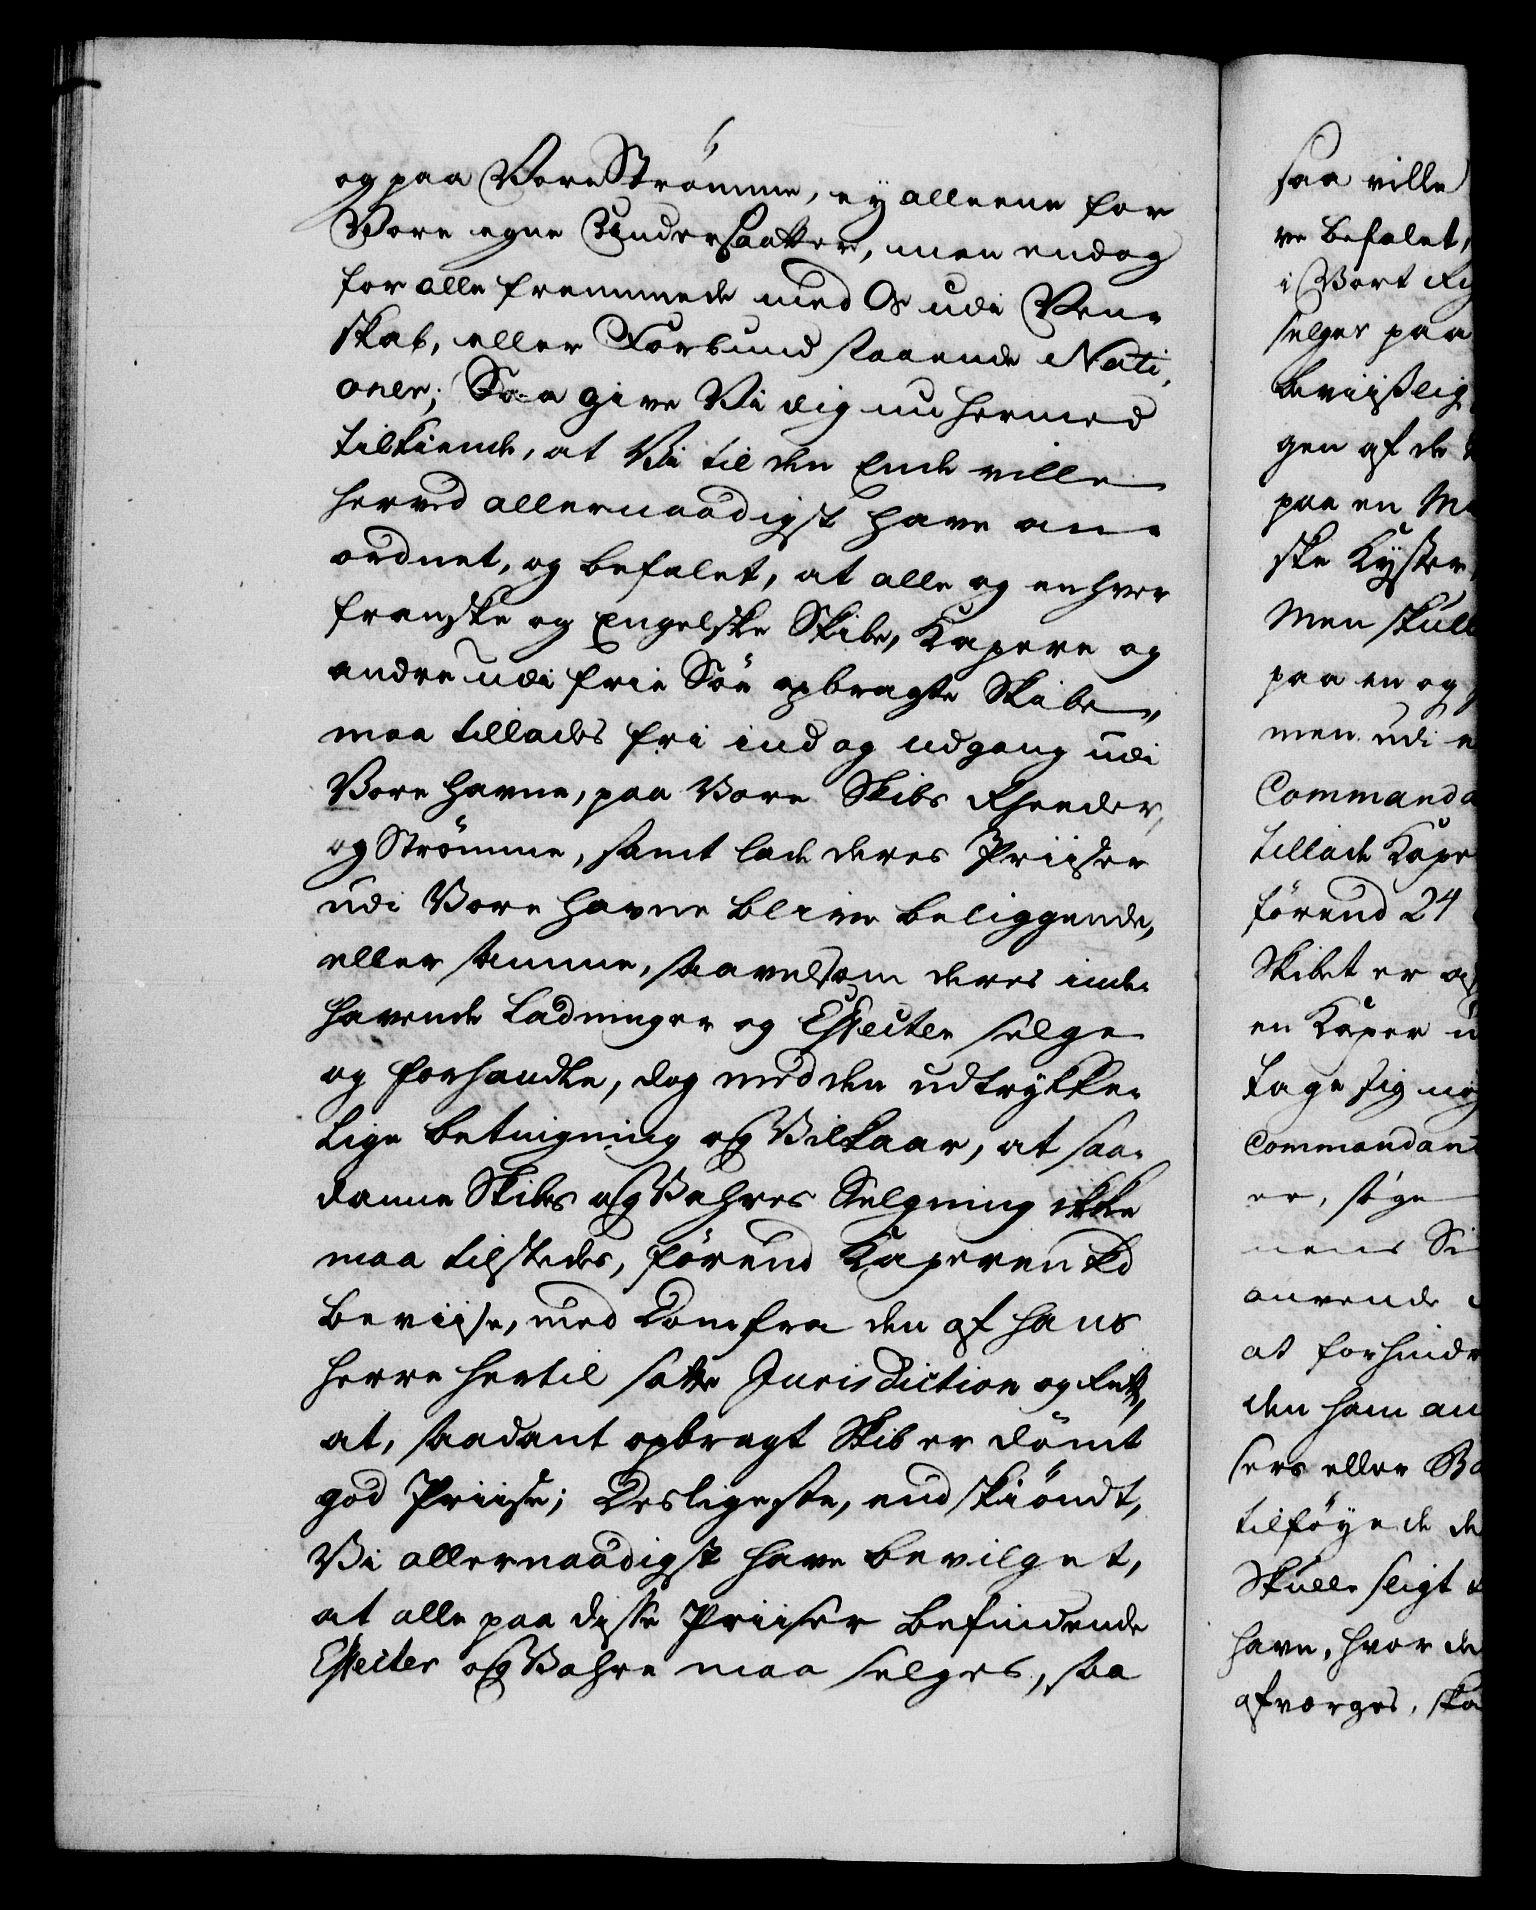 og paa Vore Strømme, ey alleene for
Vore egne Undersaatter, men endog
for alle fremmede med Os udi Ven-
skab, eller Forbund staaende Nati-
oner; Saa give Vi dig nu hermed
tilkiende, at Vi til den Ende ville
herved allernaadigst have an-
ordnet, og befalet, at alle og enhver
franske og Engelske Skibe, Kapere og
andre udi frie Søe opbragte Skibe,
maa tillades fri ind og udgang udi
Vore havne, paa Vore Skibs Rheeder,
og Strømme, samt lade deres Priiser
udi Vore havne blive beliggende,
eller samme, saavelsom deres inde-
havende Ladninger og Effecter selge
og forhandle, dog med den udtrykke-
lige betingning og Vilkaar, at saa-
danne Skibes og Vahres Selgning ikke
maa tilstedes, førend Kaperen
beviise, med Dom fra den af hans
Herre hertil satte Jurisdiction og Rett,
at, saadant opbragt Skib er dømt
god Priise; Desligeste, endskiøndt,
Vi allernaadigst have bevilget,
at alle paa disse Priiser befindende
Effecter og Vahre maa selges, saa
saa ville
ve befalet,
i Vort
selges paa
beviislig
gen af de
paa en
ske Kyster,
Men skull
paa en og
men udi
Commanda
tillade Kape
førend 24
Skibet er
en Kaper
tage sig
Commandan
er, søge
anvende
at forhindr
den ham an
sers eller
tilføyede de
Skulle sligt
havn, hvor de
afværges, ska